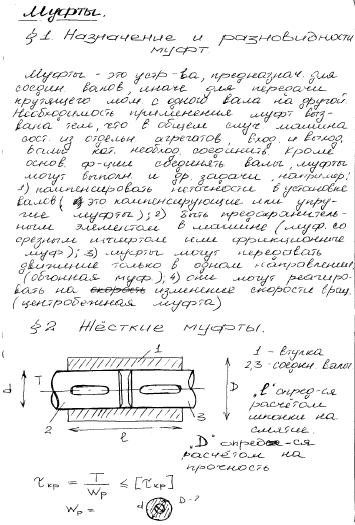 Муфты.
§1 Назначение и разновидности
муфт
Муфты - это устр-ва, предназнач. для
соедин. валов, иначе для передачи
крутящего мом. с одного вала на другой.
Необходимость применения муфт выз-
вана тем, что в общем случ машина
сост. из отдельн агрегатов, вход. и выход.
валы кот. необход. соединить. Кроме
основ. ф-ции соединять валы муфты
могут выполн. и др. задачи, например:
1) компенсировать неточности в установке
валов (это компенсирующие или упру-
гие муфты); 2) быть предохранитель-
ным элементом в машине (муф. со
срезным штифтом или фрикционные
муф); 3) муфты могут передавать
движение только в одном направлении
(обгонная муф); 4) они могут реагиро-
вать на скорость изменение скорости вращ.
(центробежная муфта)
§2 Жёсткие муфты.
1
d T
D
2
ℓ
3
1 - втулка
2,3 - соедин. валы
"ℓ" опред-ся
расчётом
шпонки на
смятие.
"D" опред-ся
расчётом на
прочность
τкр = T / Wp ≤ [τкр]
Wp =
d D-?